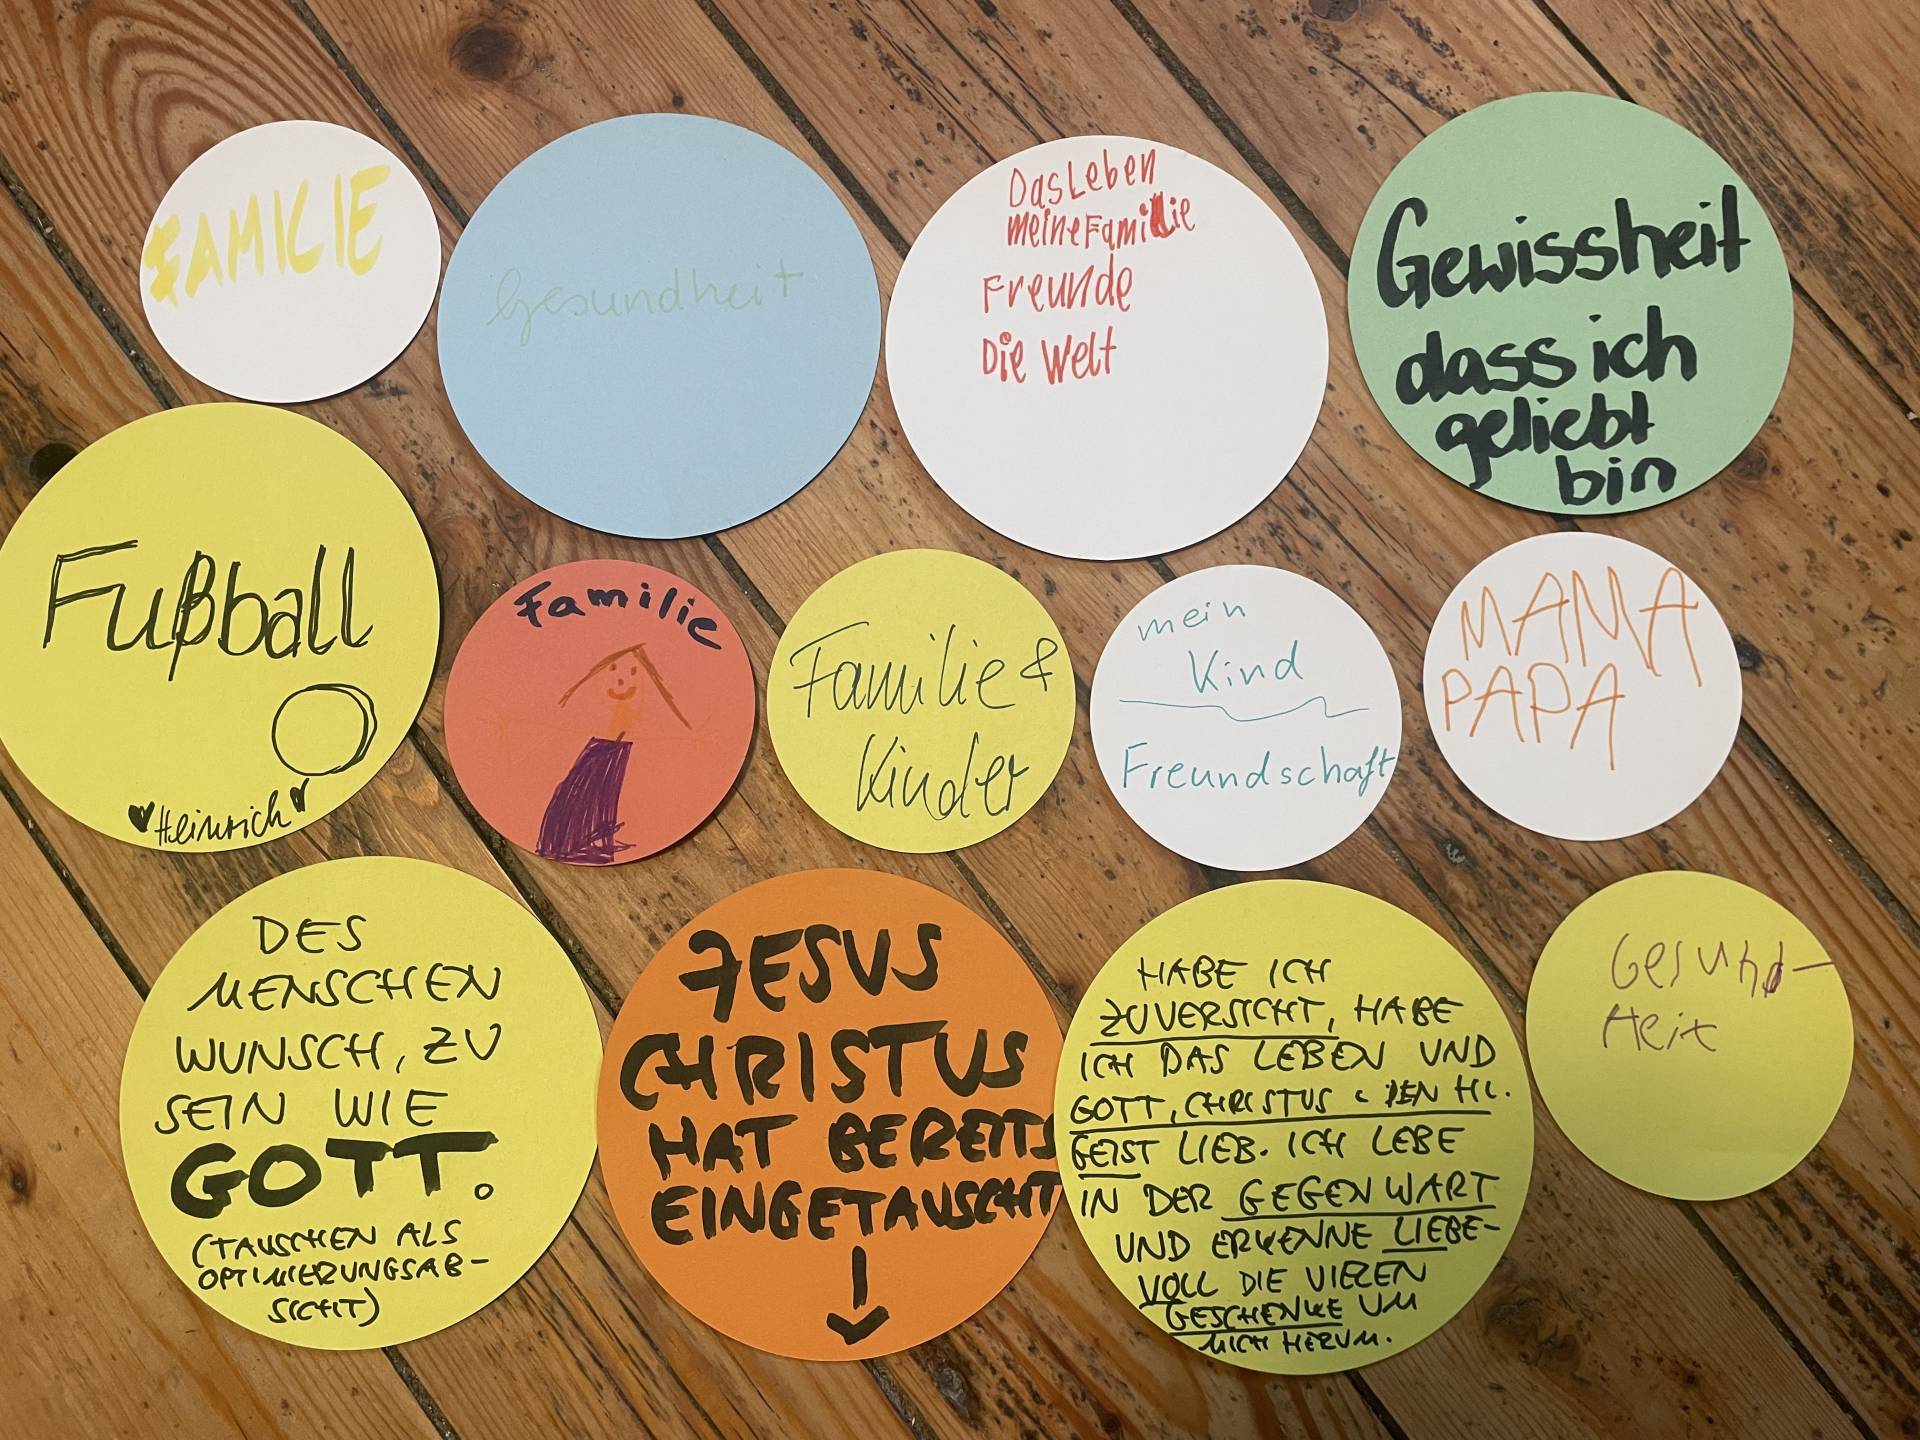 FAMILIE
Gesundheit
Das Leben
meine Familie
Freunde
Die Welt
Gewissheit
dass ich
geliebt
bin
Fußball
Heinrich
Familie
Familie &
Kinder
mein
Kind
Freundschaft
MAMA
PAPA
DES
MENSCHEN
WUNSCH, ZU
SEIN WIE
GOTT.
(TAUSCHEN ALS
OPTIMIERUNGSAB-
SICHT)
JESUS
CHRISTUS
HAT BEREITS
EINGETAUSCHT
HABE ICH
ZUVERSICHT, HABE
ICH DAS LEBEN UND
GOTT, CHRISTUS & DEN HL.
GEIST LIEB. ICH LEBE
IN DER GEGENWART
UND ERKENNE LIEBE-
VOLL DIE VIELEN
GESCHENKE UM
MICH HERUM.
Gesund-
Heit